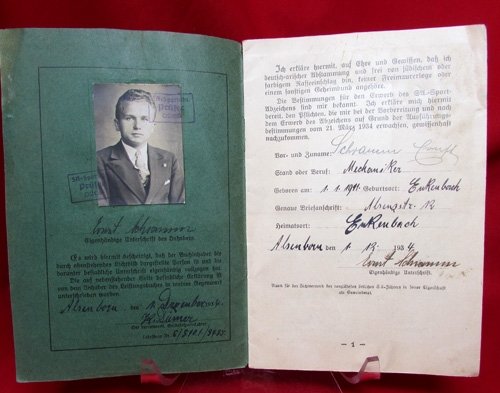 SA-Sportabz.
Prüfer
Ernst Schramm
Eigenhändige Unterschrift des Inhabers.
Es wird hiermit bescheinigt, daß der Buchinhaber die
durch obenstehendes Lichtbild dargestellte Person ist und die
darunter befindliche Unterschrift eigenhändig vollzogen hat.
Die auf nebenstehender Seite befindliche Erklärung ist
von dem Inhaber des Leistungsbuches in meiner Gegenwart
unterschrieben worden.
Alsenborn, den 1. Dezember 1934
Ich erkläre hiermit, auf Ehre und Gewissen, daß ich
deutsch-arischer Abstammung und frei von jüdischem oder
farbigem Rasseeinschlag bin, keiner Freimaurerloge oder
einem sonstigen Geheimbund angehöre.
Die Bestimmungen für den Erwerb des SA-Sport-
abzeichens sind mir bekannt. Ich erkläre mich hiermit
bereit, den Pflichten, die mir bei der Vorbereitung und nach
dem Erwerb des Abzeichens auf Grund der Ausführungs-
bestimmungen vom 21. März 1934 erwachsen, gewissenhaft
nachzukommen.
Vor- und Zuname: Schramm Ernst
Stand oder Beruf: Mechaniker
Geboren am: 1. 1. 1911 Geburtsort: Enkenbach
Genaue Briefanschrift: Alsenzstr. 12
Heimatsort: Enkenbach
Alsenborn den 1. 12. 1934
Ernst Schramm
Eigenhändige Unterschrift.
– 1 –